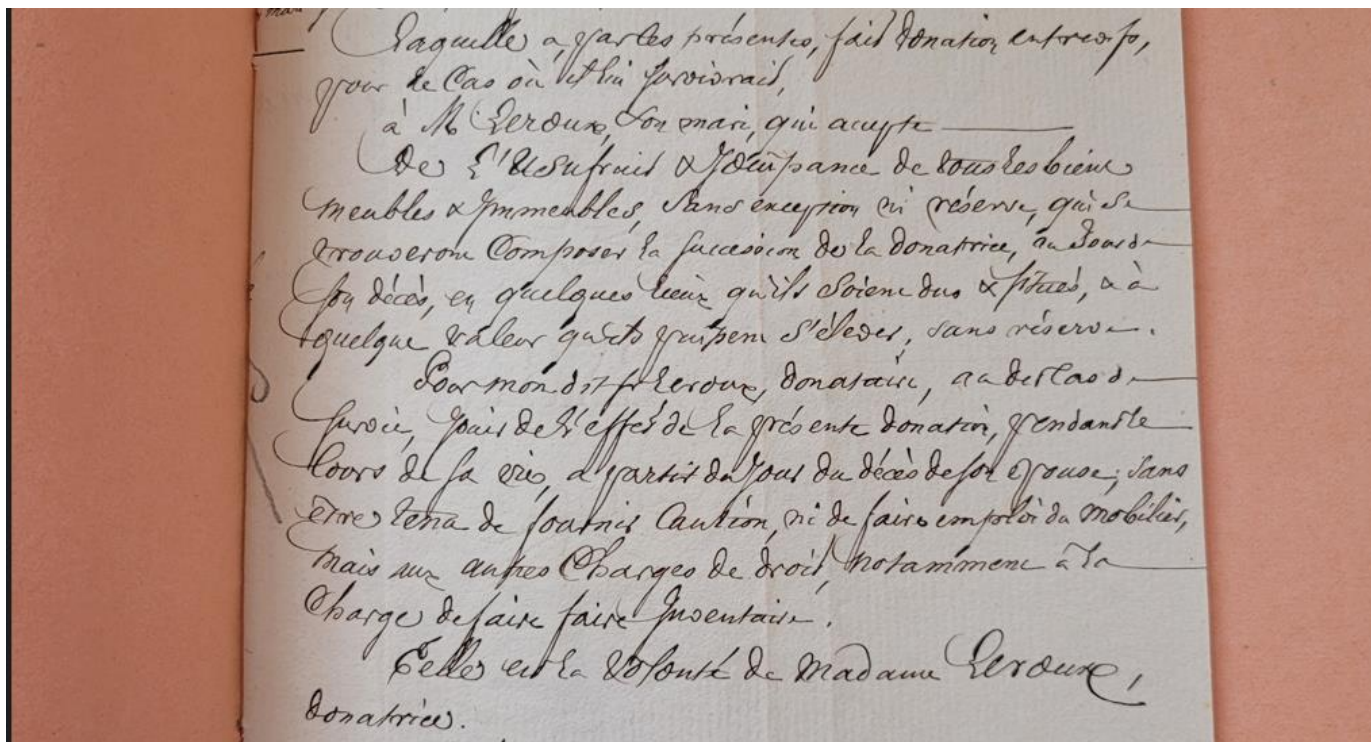 Laquelle a, par les présentes, fait donation entre vifs,
pour le cas où il lui survivrait,
à M Leroux, son mari, qui accepte
De l'Usufruit & Jouissance de tous les biens
meubles & Immeubles, sans exception ni réserve, qui se
trouveront Composer la succession de la donatrice, au Jour de
son décès, en quelques lieux qu'ils soient dus & situés, & à
quelque valeur qu'ils puissent s'élever, sans réserve.
Pour mon dit sr Leroux, donataire, au dit Cas de
survie, Jouir de l'effet de la présente donation, pendant le
Cours de sa vie, a partir du Jour du décès de son épouse; sans
être tenu de fournir Caution, ni de faire emploi du mobilier,
mais aux autres Charges de droit, notamment à la
Charge de faire faire Inventaire.
Telle est la Volonté de Madame Leroux,
donatrice.